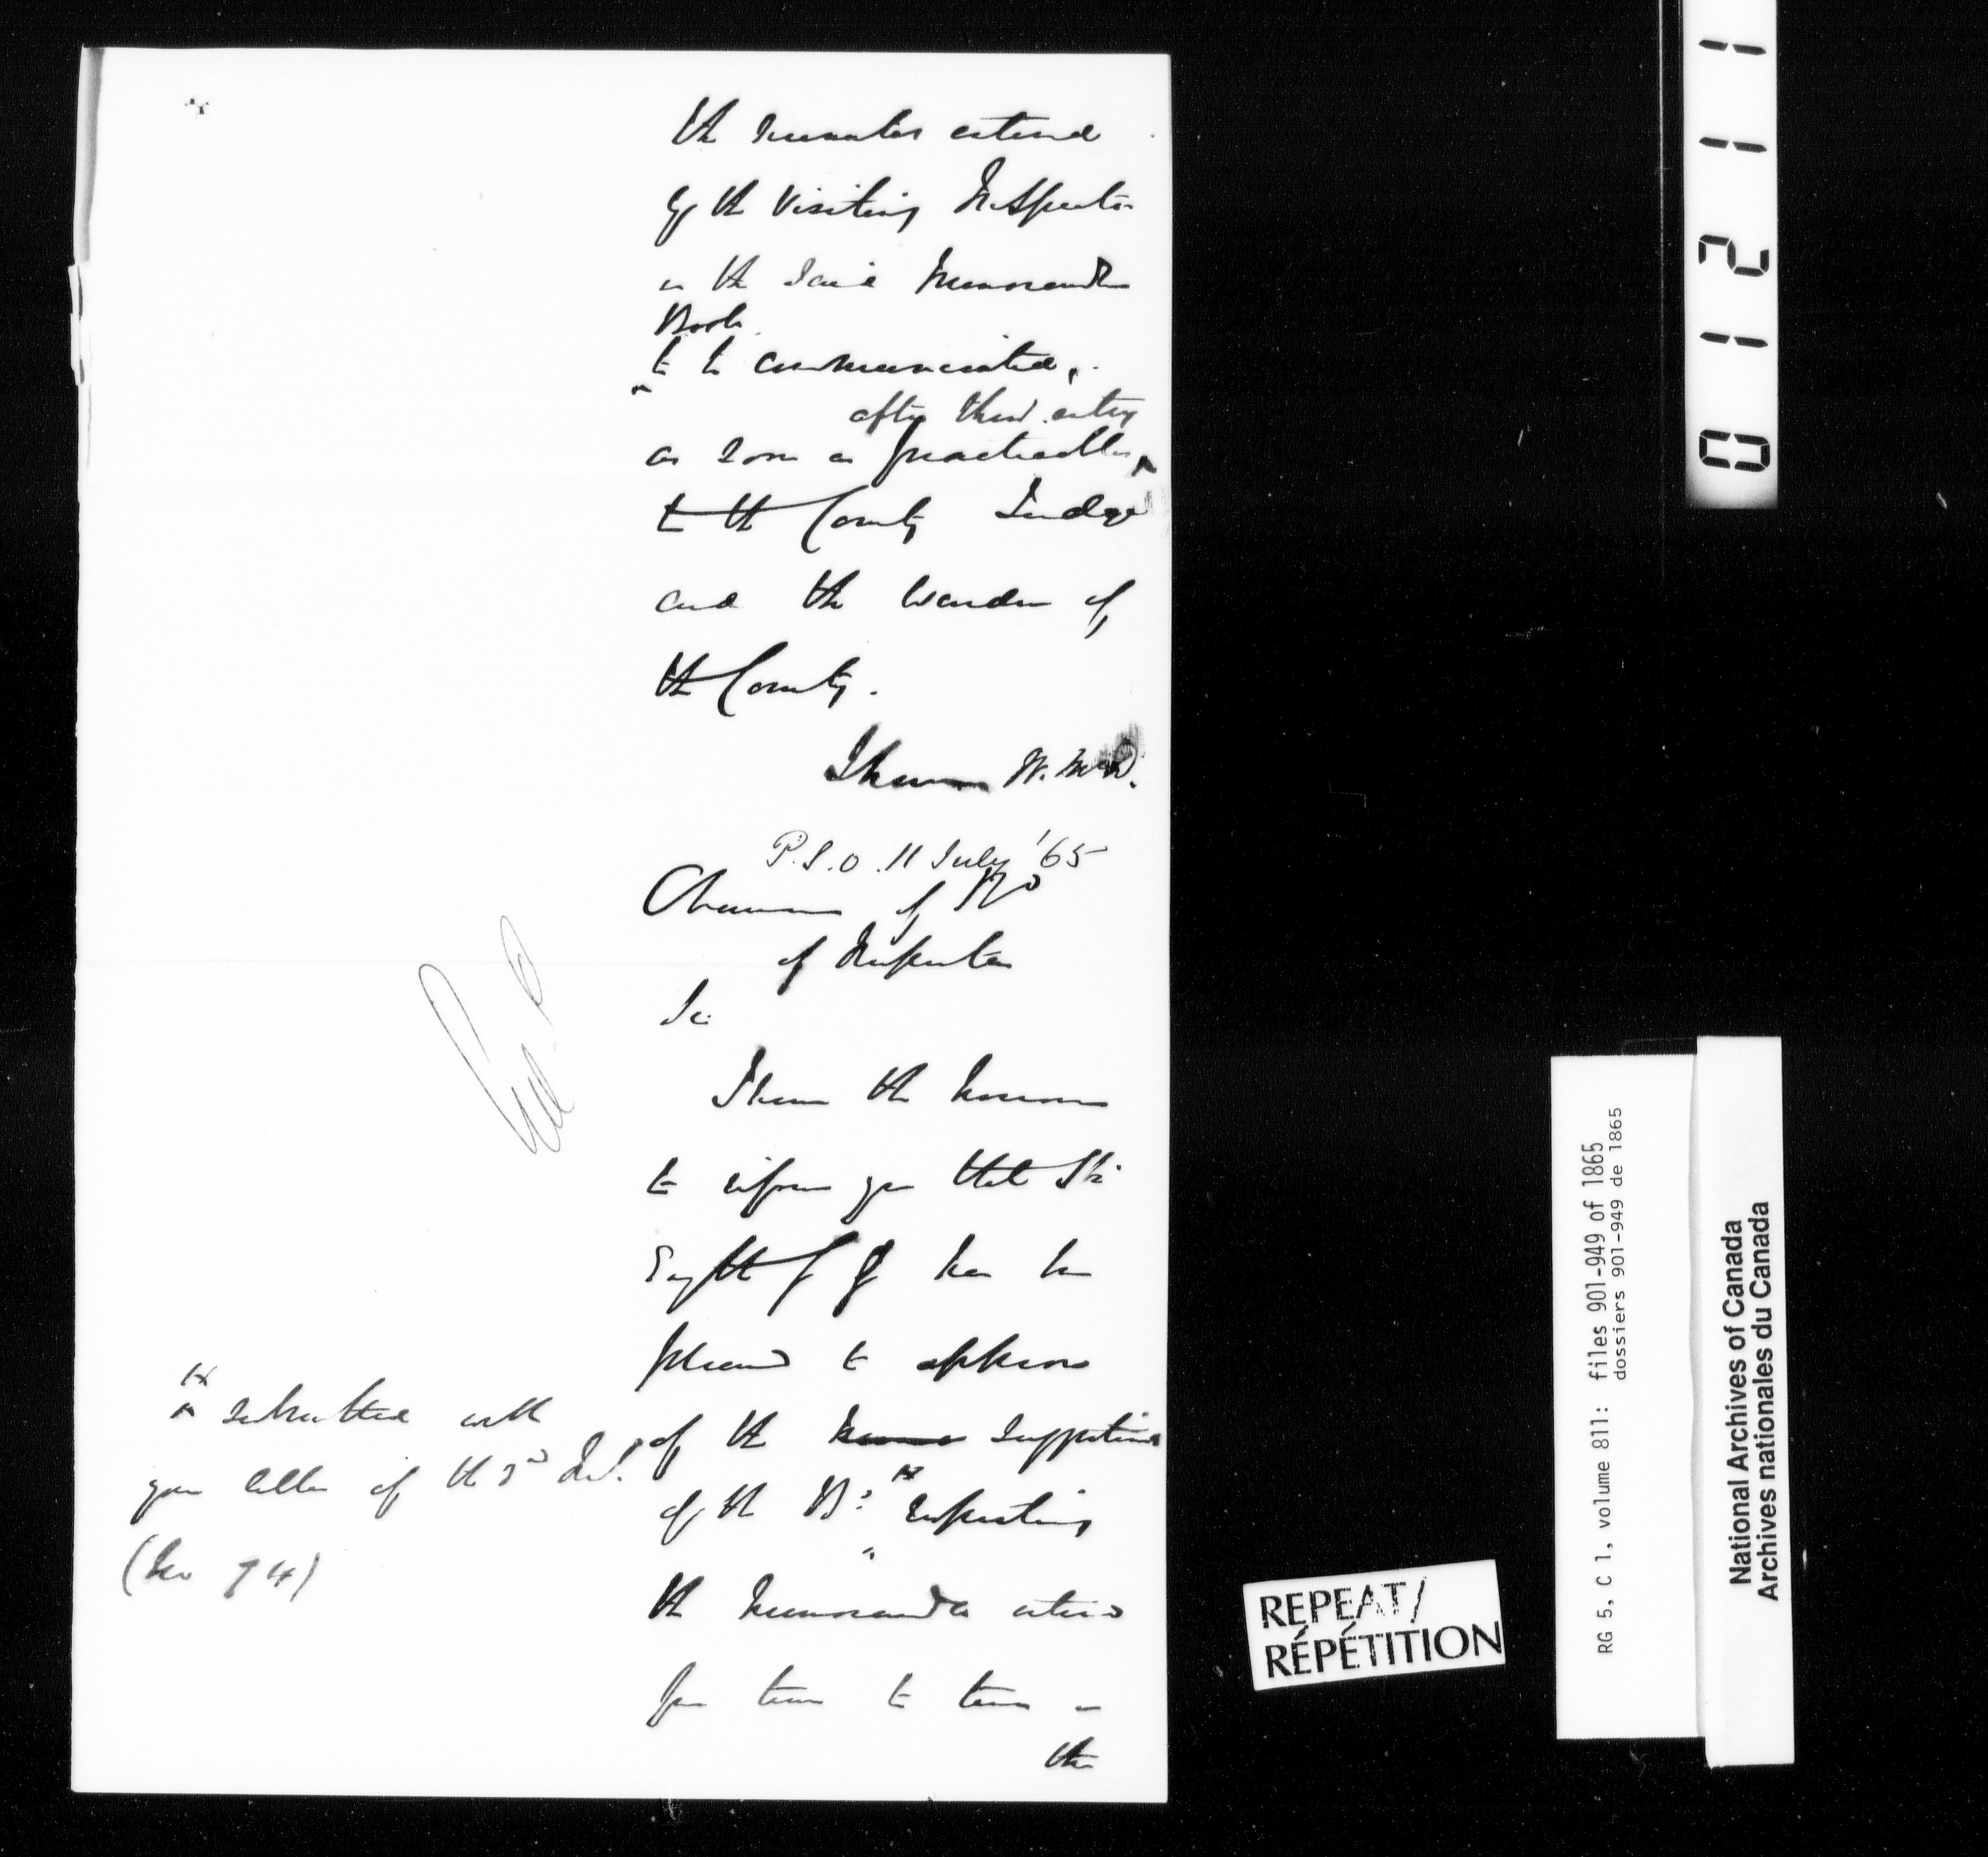 the minutes entered
by the Visiting Inspector
in the said Memorandum
Book
to be communicated,
after their entry
as soon as practicable
to the County Judge
and the Warden of
the County.
I have W. McD.
P.S.O. 11 July '65
Chairman of Bd
of Inspectors
Sir
I have the honor
to inform you that His
Excy the G has been
pleased to approve
of the suggestions
of the Bd respecting
x submitted with
your letter of the 3rd Inst.
(No 74)
the memoranda entered
from time to time in
the
REPEAT/
RÉPÉTITION
RG 5, C 1, volume 811: files 901-949 of 1865
dossiers 901-949 de 1865
National Archives of Canada
Archives nationales du Canada
0 1 2 1 1